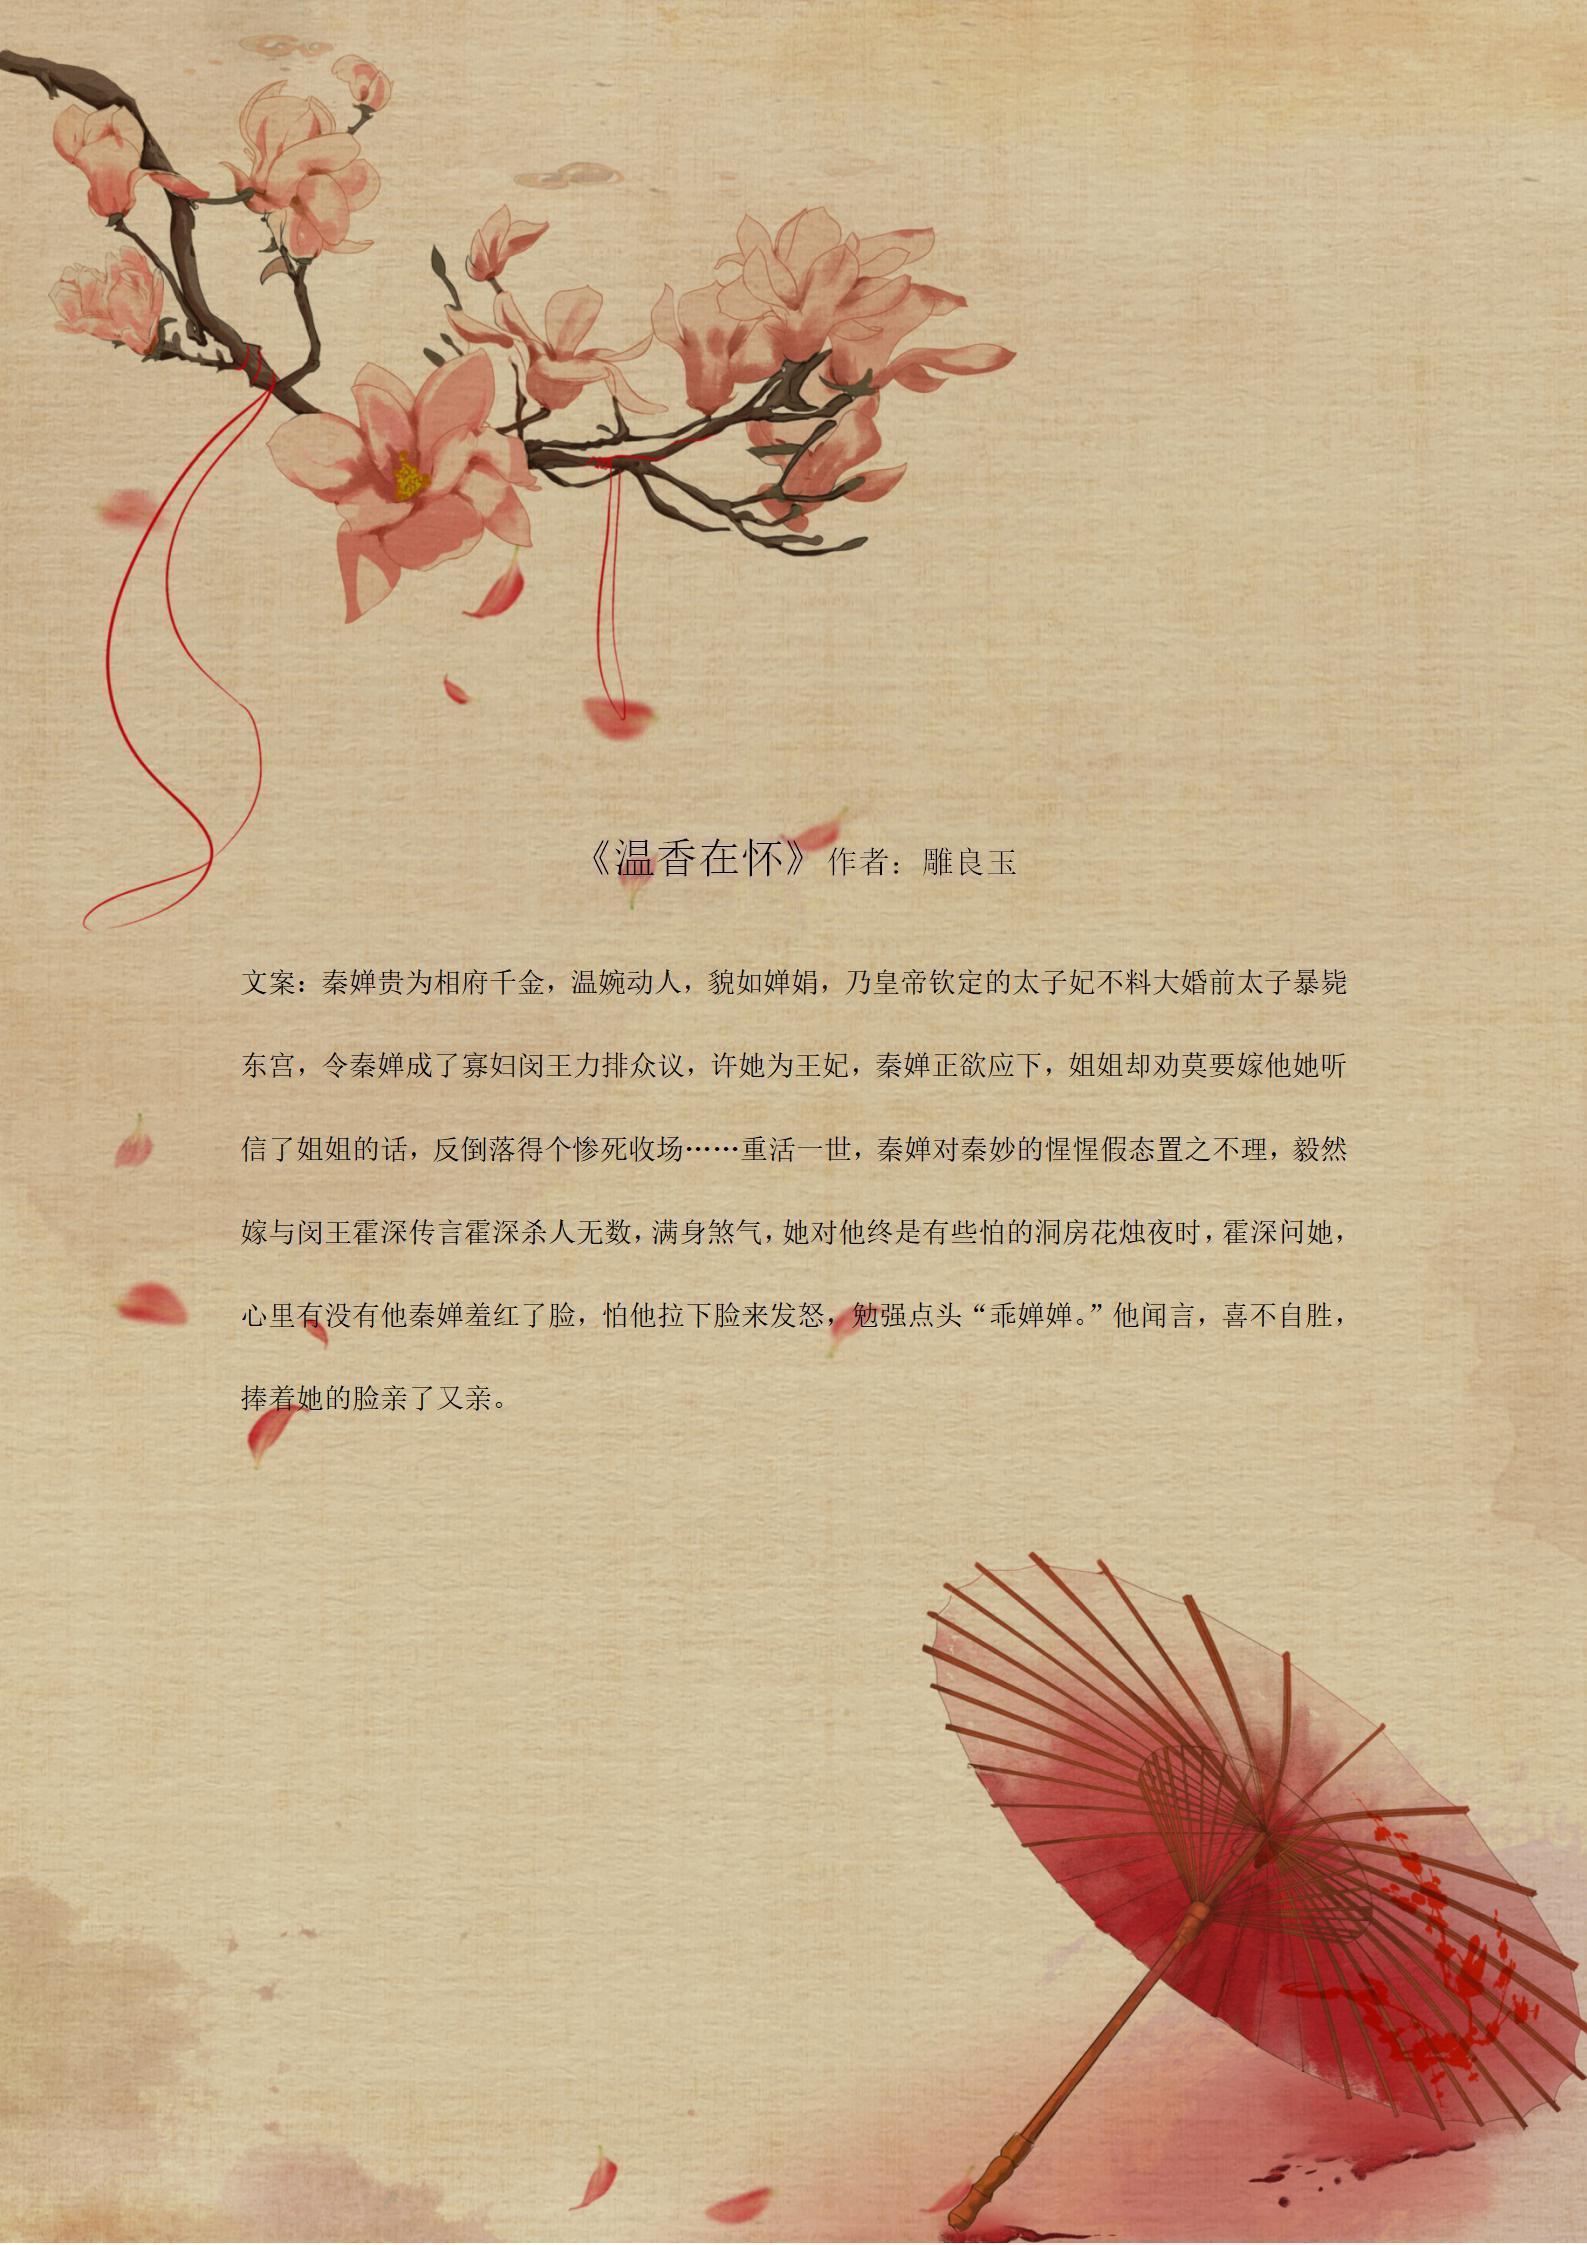 《温香在怀》作者：雕良玉
文案：秦婵贵为相府千金，温婉动人，貌如婵娟，乃皇帝钦定的太子妃不料大婚前太子暴毙
东宫，令秦婵成了寡妇闵王力排众议，许她为王妃，秦婵正欲应下，姐姐却劝莫要嫁他她听
信了姐姐的话，反倒落得个惨死收场……重活一世，秦婵对秦妙的惺惺假态置之不理，毅然
嫁与闵王霍深传言霍深杀人无数，满身煞气，她对他终是有些怕的洞房花烛夜时，霍深问她，
心里有没有他秦婵羞红了脸，怕他拉下脸来发怒，勉强点头“乖婵婵。”他闻言，喜不自胜，
捧着她的脸亲了又亲。